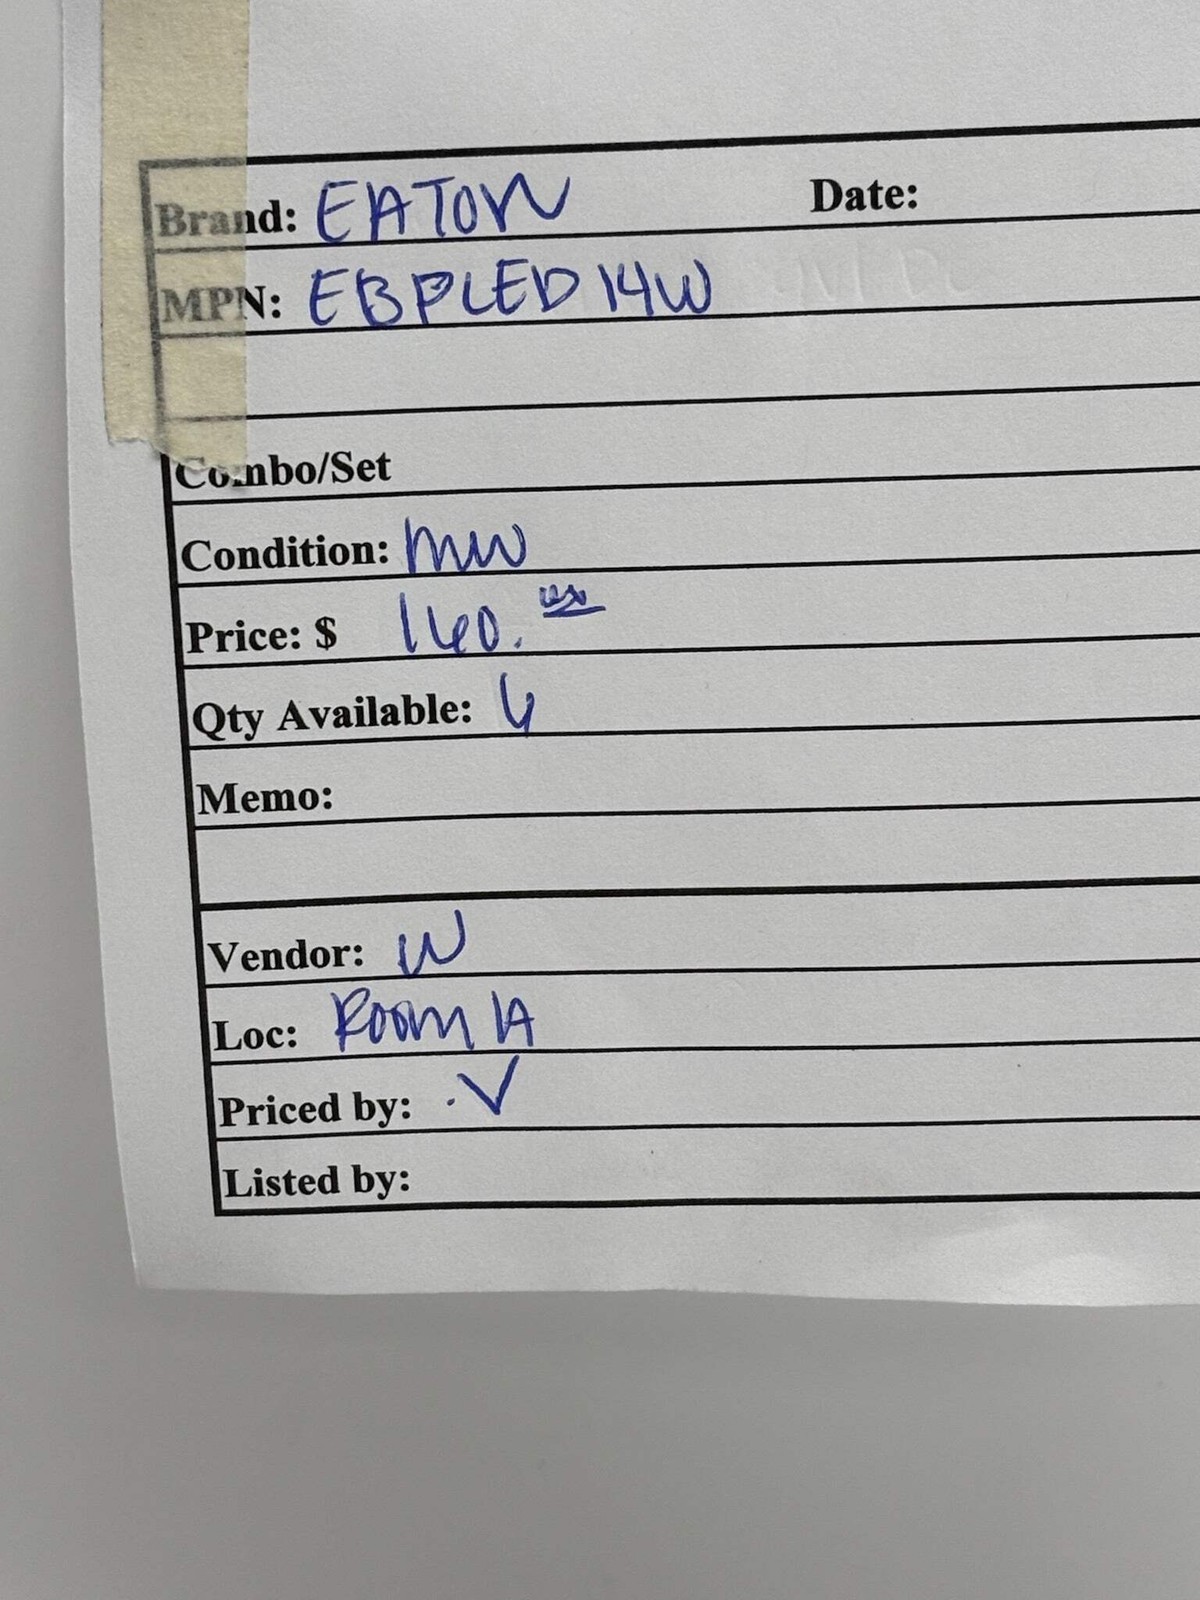 Brand: EATON Date:
MPN: EBPLED14W
Combo/Set
Condition:
Price: $ 160.
Qty Available:
Memo:
Vendor: W
Loc: Room 1A
Priced by: V
Listed by: